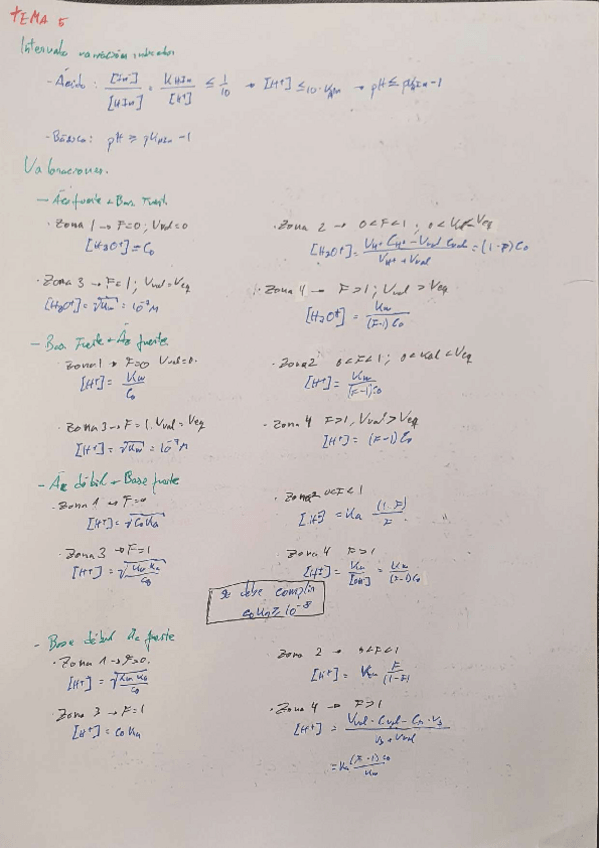 TEMA 5
Intervalo variación indicador
- Ácido: [In⁻]/[HIn] = K_HIn/[H⁺] ≤ 1/10 → [H⁺] ≤ 10·K_HIn → pH ≤ pK_HIn - 1
- Básico: pH ≥ pK_HIn - 1
Valoraciones.
- Ác fuerte + Base Fuerte
· Zona 1 → F=0; Vval=0
[H₃O⁺] = C₀
· Zona 2 → 0<F<1; 0<Vval<Veq
[H₃O⁺] = = (1-F) C₀
· Zona 3 → F=1; Vval=Veq
[H₃O⁺] = √Kw = 10⁻⁷ M
· Zona 4 → F>1; Vval > Veq
[H₃O⁺] = Kw/((F-1)C₀)
- Base Fuerte + Ác fuerte
· Zona 1 → F=0 Vval=0.
[H⁺] = Kw/C₀
· Zona 2 0<F<1; 0<Vval<Veq
[H⁺] = Kw/((F-1)C₀)
· Zona 3 → F=1. Vval=Veq
[H⁺] = √Kw = 10⁻⁷ M
· Zona 4 F>1, Vval>Veq
[H⁺] = (F-1) C₀
- Ác débil + Base fuerte
· Zona 1 → F=0
[H⁺] = √C₀Ka
· Zona 2 0<F<1
[H⁺] = Ka (1-F)/F
· Zona 3 → F=1
[H⁺] = √(Kw Ka/C₀)
· Zona 4 F>1
[H⁺] = Kw/[OH⁻] = Kw/((F-1)C₀)
Se debe cumplir
10⁻⁸
- Base débil Ác fuerte
· Zona 1 → F=0.
[H⁺] = √(Kw Ka/C₀)
Zona 2 → 0<F<1
[H⁺] = Ka F/(1-F)
· Zona 3 → F=1
[H⁺] = C₀Ka
· Zona 4 → F>1
[H⁺] =